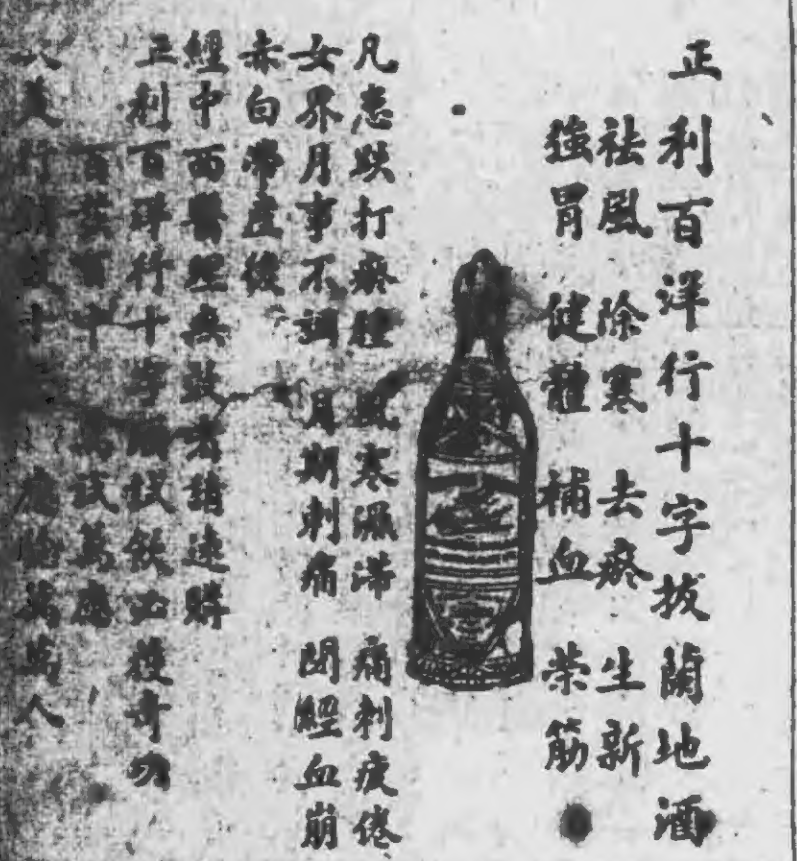 正利百洋行十字拔蘭地酒
祛風 除寒 去瘀 生新
強胃 健體 補血 荣筋
凡患跌打瘀 風寒濕滯 痛刺疲倦
女界月事不調 月期刺痛 閉經血崩
赤白帶產後
經中西醫理無效者請速購
正利百洋行十字 飲必獲奇功
百 百中 萬試萬應
行 十 萬萬人